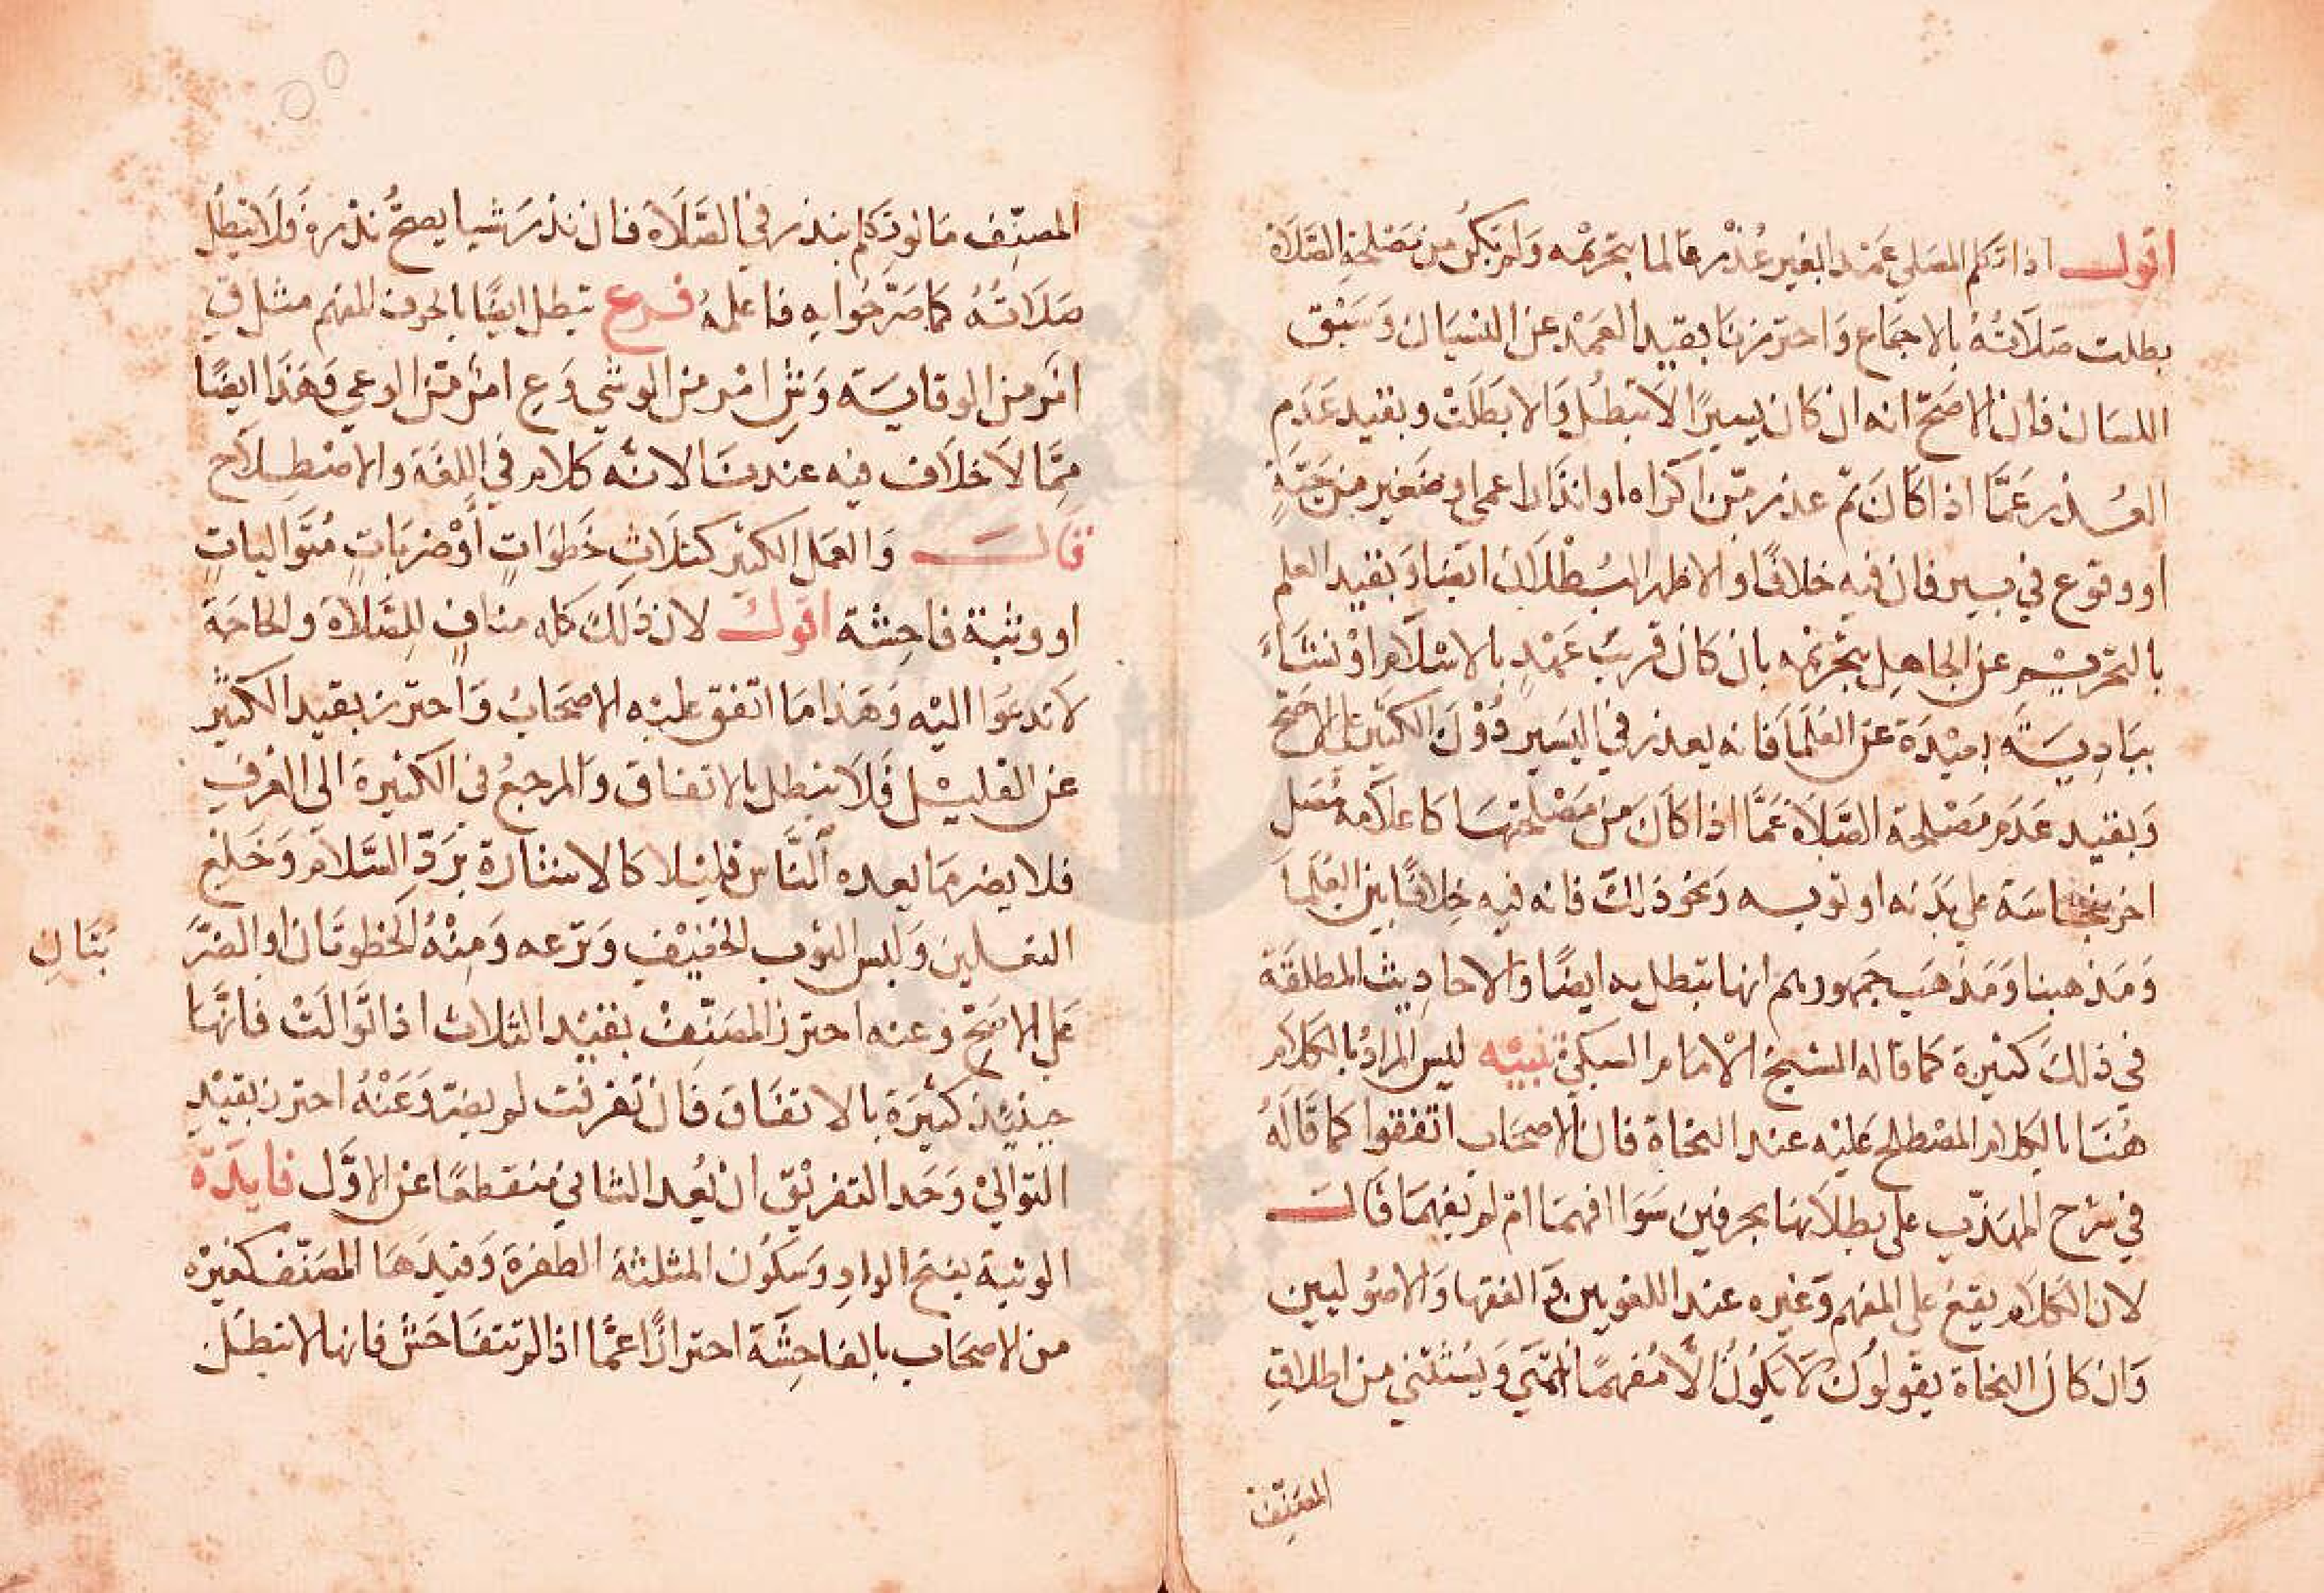 اقول اذا تكلم المصلي عمدا بغير عذر عالما بتحريمه ولم يكن من مصلحة الصلاة
بطلت صلاته بالاجماع واحترزنا بقيد العمد عن النسيان وسبق
اللسان فان الاصح انه ان كان يسيرا لا تبطل والا بطلت وبقيد عدم
العذر عما اذا كان ثم عذر من اكراه او انذار اعمى او صغير من حية
او وقوع في بير فان فيه خلافا والاظهر البطلان ايضا وبقيد العلم
بالتحريم عن الجاهل بتحريمه بان كان قريب عهد بالاسلام او نشاء
ببادية بعيدة عن العلما فانه يعذر في اليسير دون الكثير على الاصح
وبقيد عدم مصلحة الصلاة عما اذا كان من مصلحتها كاعلامه مصل
اخر بنجاسة على بدنه او ثوبه ونحو ذلك فانه فيه خلافا بين العلما
ومذهبنا ومذهب جمهورهم انها تبطل به ايضا والاحاديث المطلقة
في ذلك كثيرة كما قاله الشيخ الامام السبكي تنبيه ليس المراد بالكلام
هنا بالكلام المصطلح عليه عند النحاة فان الاصحاب اتفقوا كما قاله
في شرح المهذب على بطلانها بحرفين سوا افهما ام لم يفهما قال
لان الكلام يقع على المفهم وغيره عند اللغويين والفقها والاصوليين
وان كان النحاة يقولون لا يكون الا مفهما انتهى ويستثنى من اطلاق
المصنف
المصنف ما لو تكلم بنذر في الصلاة فان نذر شيا يصح نذره فلا تبطل
صلاته كما صرحوا به فاعلمه فرع تبطل ايضا بالحرف المفهم مثل ق
امر من الوقاية وش امر من الوشي وع امر من الوعي وهذا ايضا
مما لا خلاف فيه عندنا لانه كلام في اللغة والاصطلاح
قال والعمل الكثير كثلاث خطوات او ضربات متواليات
او وثبة فاحشة اقول لان ذلك كله مناف للصلاة والحاجة
لا تدعوا اليه وهذا ما اتفق عليه الاصحاب واحترز بقيد الكثير
عن القليل فلا تبطل بالاتفاق والمرجع في الكثيرة الى العرف
فلا يضر ما يعده الناس قليلا كالاشارة برد السلام وخلع
النعلين ولبس الثوب الخفيف ونزعه ومنه الخطوتان او الضر
بتان
على الاصح وعنه احترز المصنف بقيد الثلاث اذا توالت فانها
حينيذ كثيرة بالاتفاق فان تفرقت لم يضر وعنه احترز بقيد
التوالي وحد التفريق ان يعد الثاني منقطعا عن الاول فايدة
الوثبة بفتح الواو وسكون المثلثة الطفرة وقيدها المصنف كغيره
من الاصحاب بالفاحشة احترازا عما اذا لم تتفاحش فانها لا تبطل